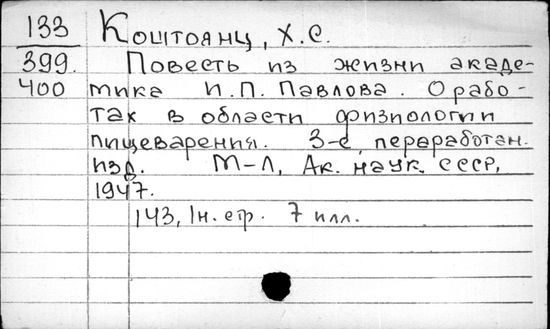 133 Коштоянц, Х.С.
399. Повесть из жизни акаде-
400 мика И.П. Павлова. О рабо-
тах в области физиологии
пищеварения. 3-е, переработан.
изд. М-Л, Ак. наук СССР,
1947.
143, 1н. стр. 7 илл.